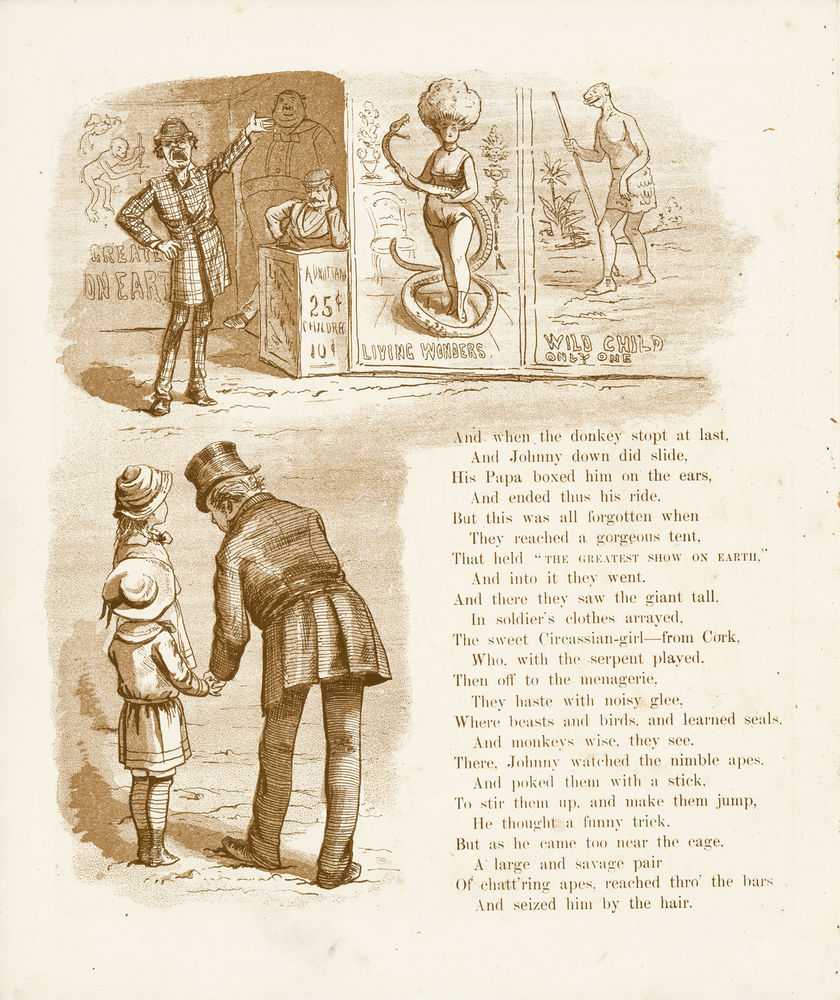 GREATE
ON EART
ADMITTAN
25¢
CHILDRE
10¢
LIVING WONDERS.
WILD CHILD
ONLY ONE
And when the donkey stopt at last,
And Johnny down did slide,
His Papa boxed him on the ears,
And ended thus his ride.
But this was all forgotten when
They reached a gorgeous tent,
That held "THE GREATEST SHOW ON EARTH,"
And into it they went.
And there they saw the giant tall,
In soldier's clothes arrayed,
The sweet Circassian-girl—from Cork,
Who, with the serpent played.
Then off to the menagerie,
They haste with noisy glee,
Where beasts and birds, and learned seals,
And monkeys wise, they see.
There, Johnny watched the nimble apes,
And poked them with a stick,
To stir them up, and make them jump,
He thought a funny trick.
But as he came too near the cage,
A large and savage pair
Of chatt'ring apes, reached thro' the bars
And seized him by the hair.